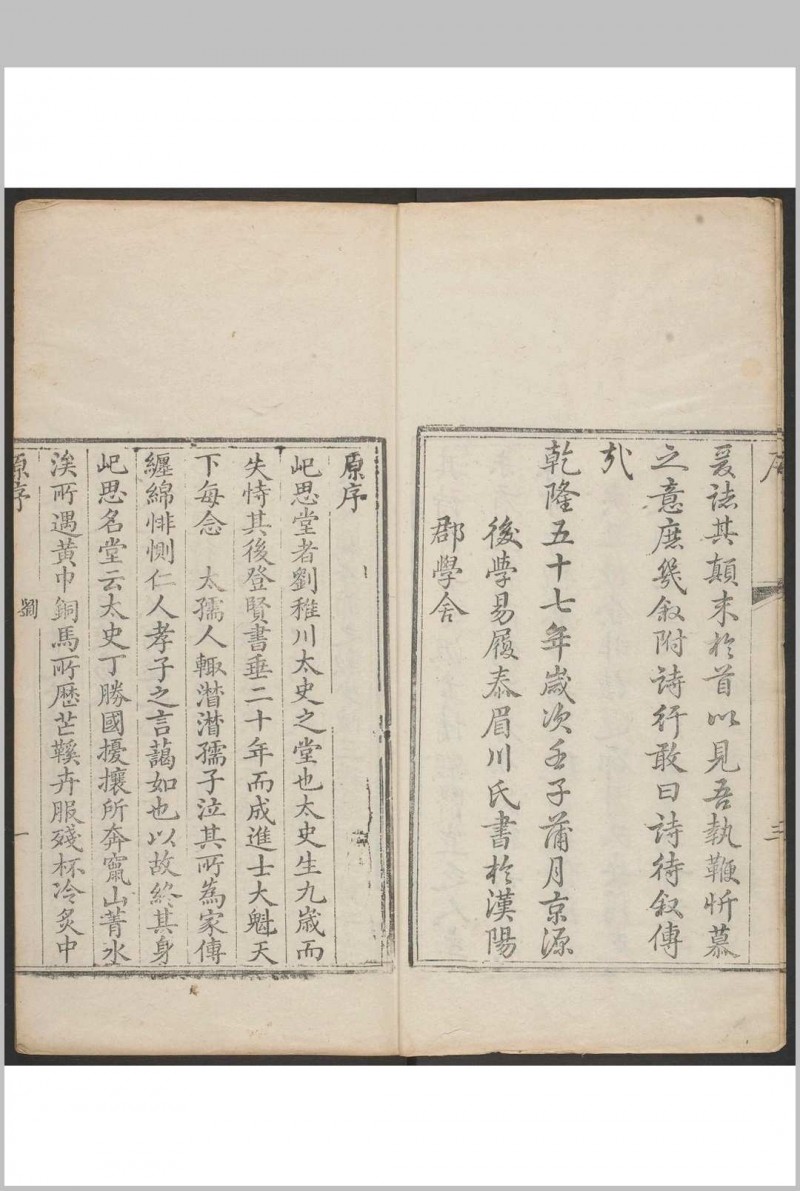 序
三
爰誌其顛末於首以見吾執鞭忻慕
之意庶㡬叙附詩行敢曰詩待叙傳
㢤
乾隆五十七年歲次壬子蒲月京源
後學易履泰眉川氏書於漢陽
郡學舍
原序
屺思堂者劉稚川太史之堂也太史生九歲而
失恃其後登賢書垂二十年而成進士大魁天
下每念 太孺人輙潸潸孺子泣其所為家傳
纏綿悱惻仁人孝子之言藹如也以故終其身
屺思名堂云太史丁勝國擾攘所奔竄山菁水
涘所遇黃巾銅馬所歷芒鞵卉服殘杯冷炙中
原序
劉
一